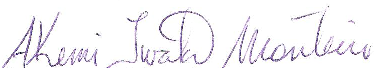 Akemi Iwata Monteiro